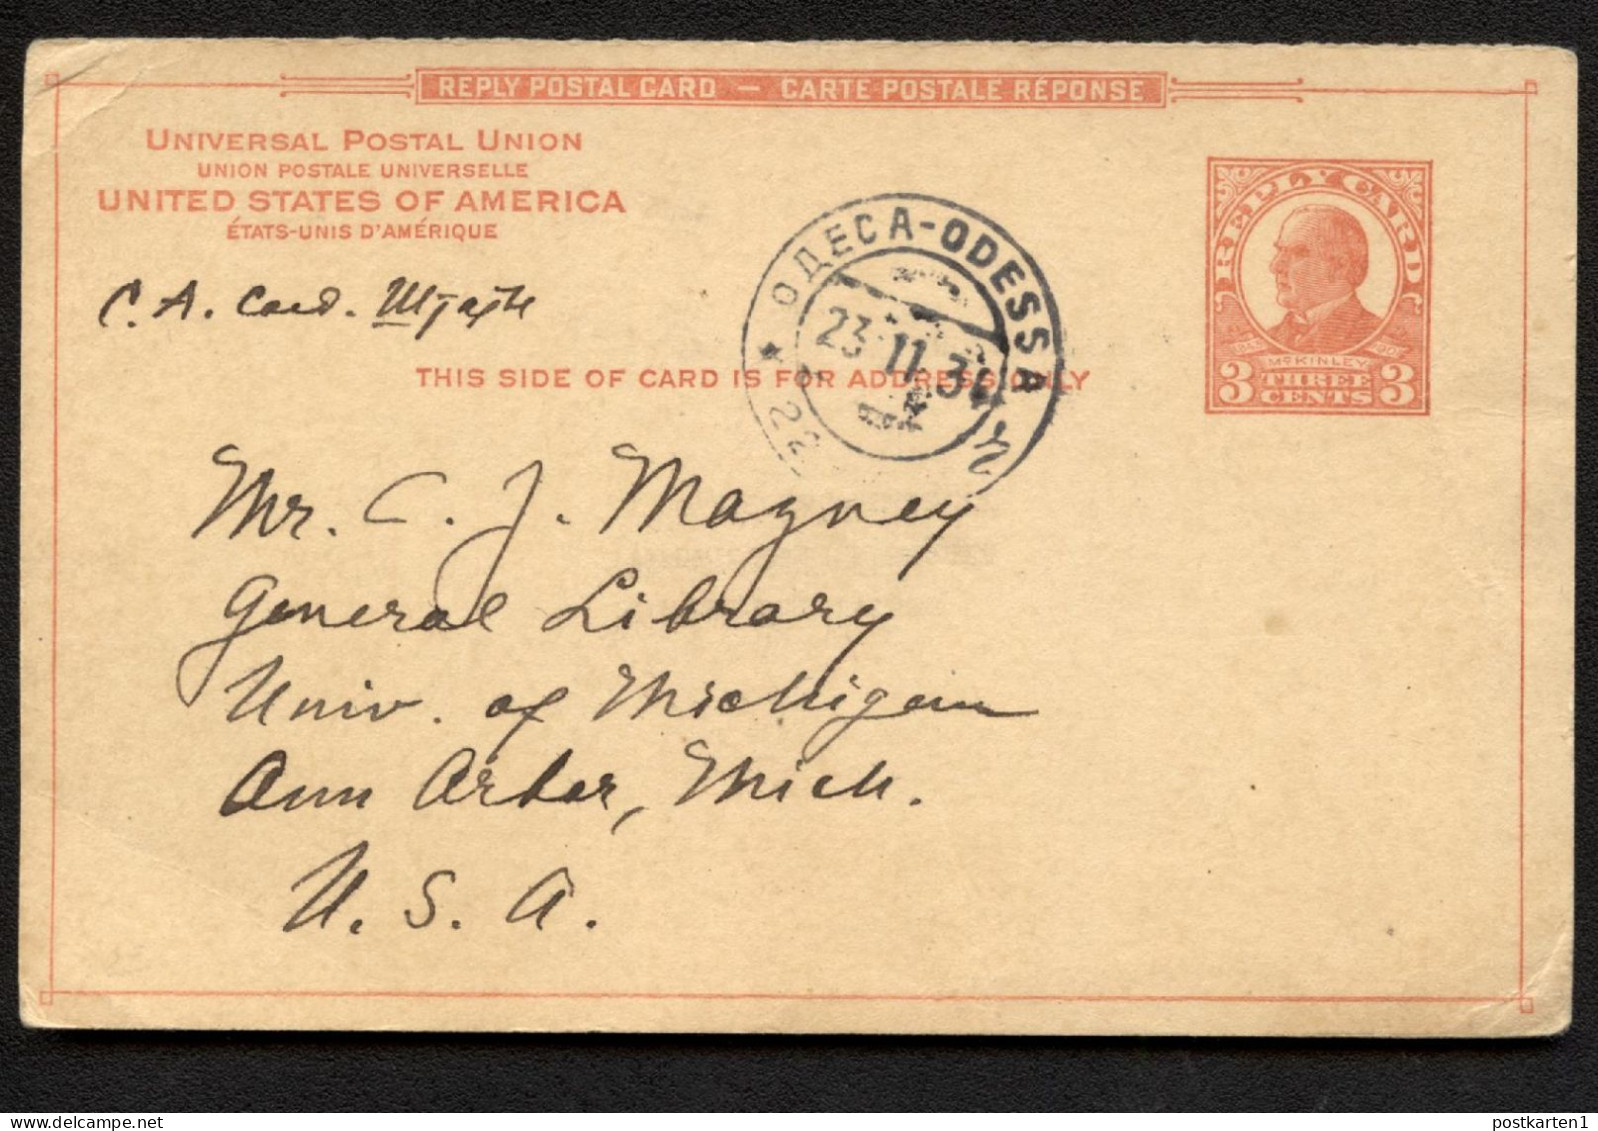 REPLY POSTAL CARD — CARTE POSTALE RÉPONSE
UNIVERSAL POSTAL UNION
UNION POSTALE UNIVERSELLE
UNITED STATES OF AMERICA
ÉTATS-UNIS D'AMÉRIQUE
REPLY CARD
MCKINLEY
3 THREE 3
CENTS
C. A. Card.
ОДЕСА-ODESSA
23 11 34
22
THIS SIDE OF CARD IS FOR ADDRESS ONLY
Mr. C. J. Magney
General Library
Univ. of Michigan
Ann Arbor, Mich.
U. S. A.
postkarten1